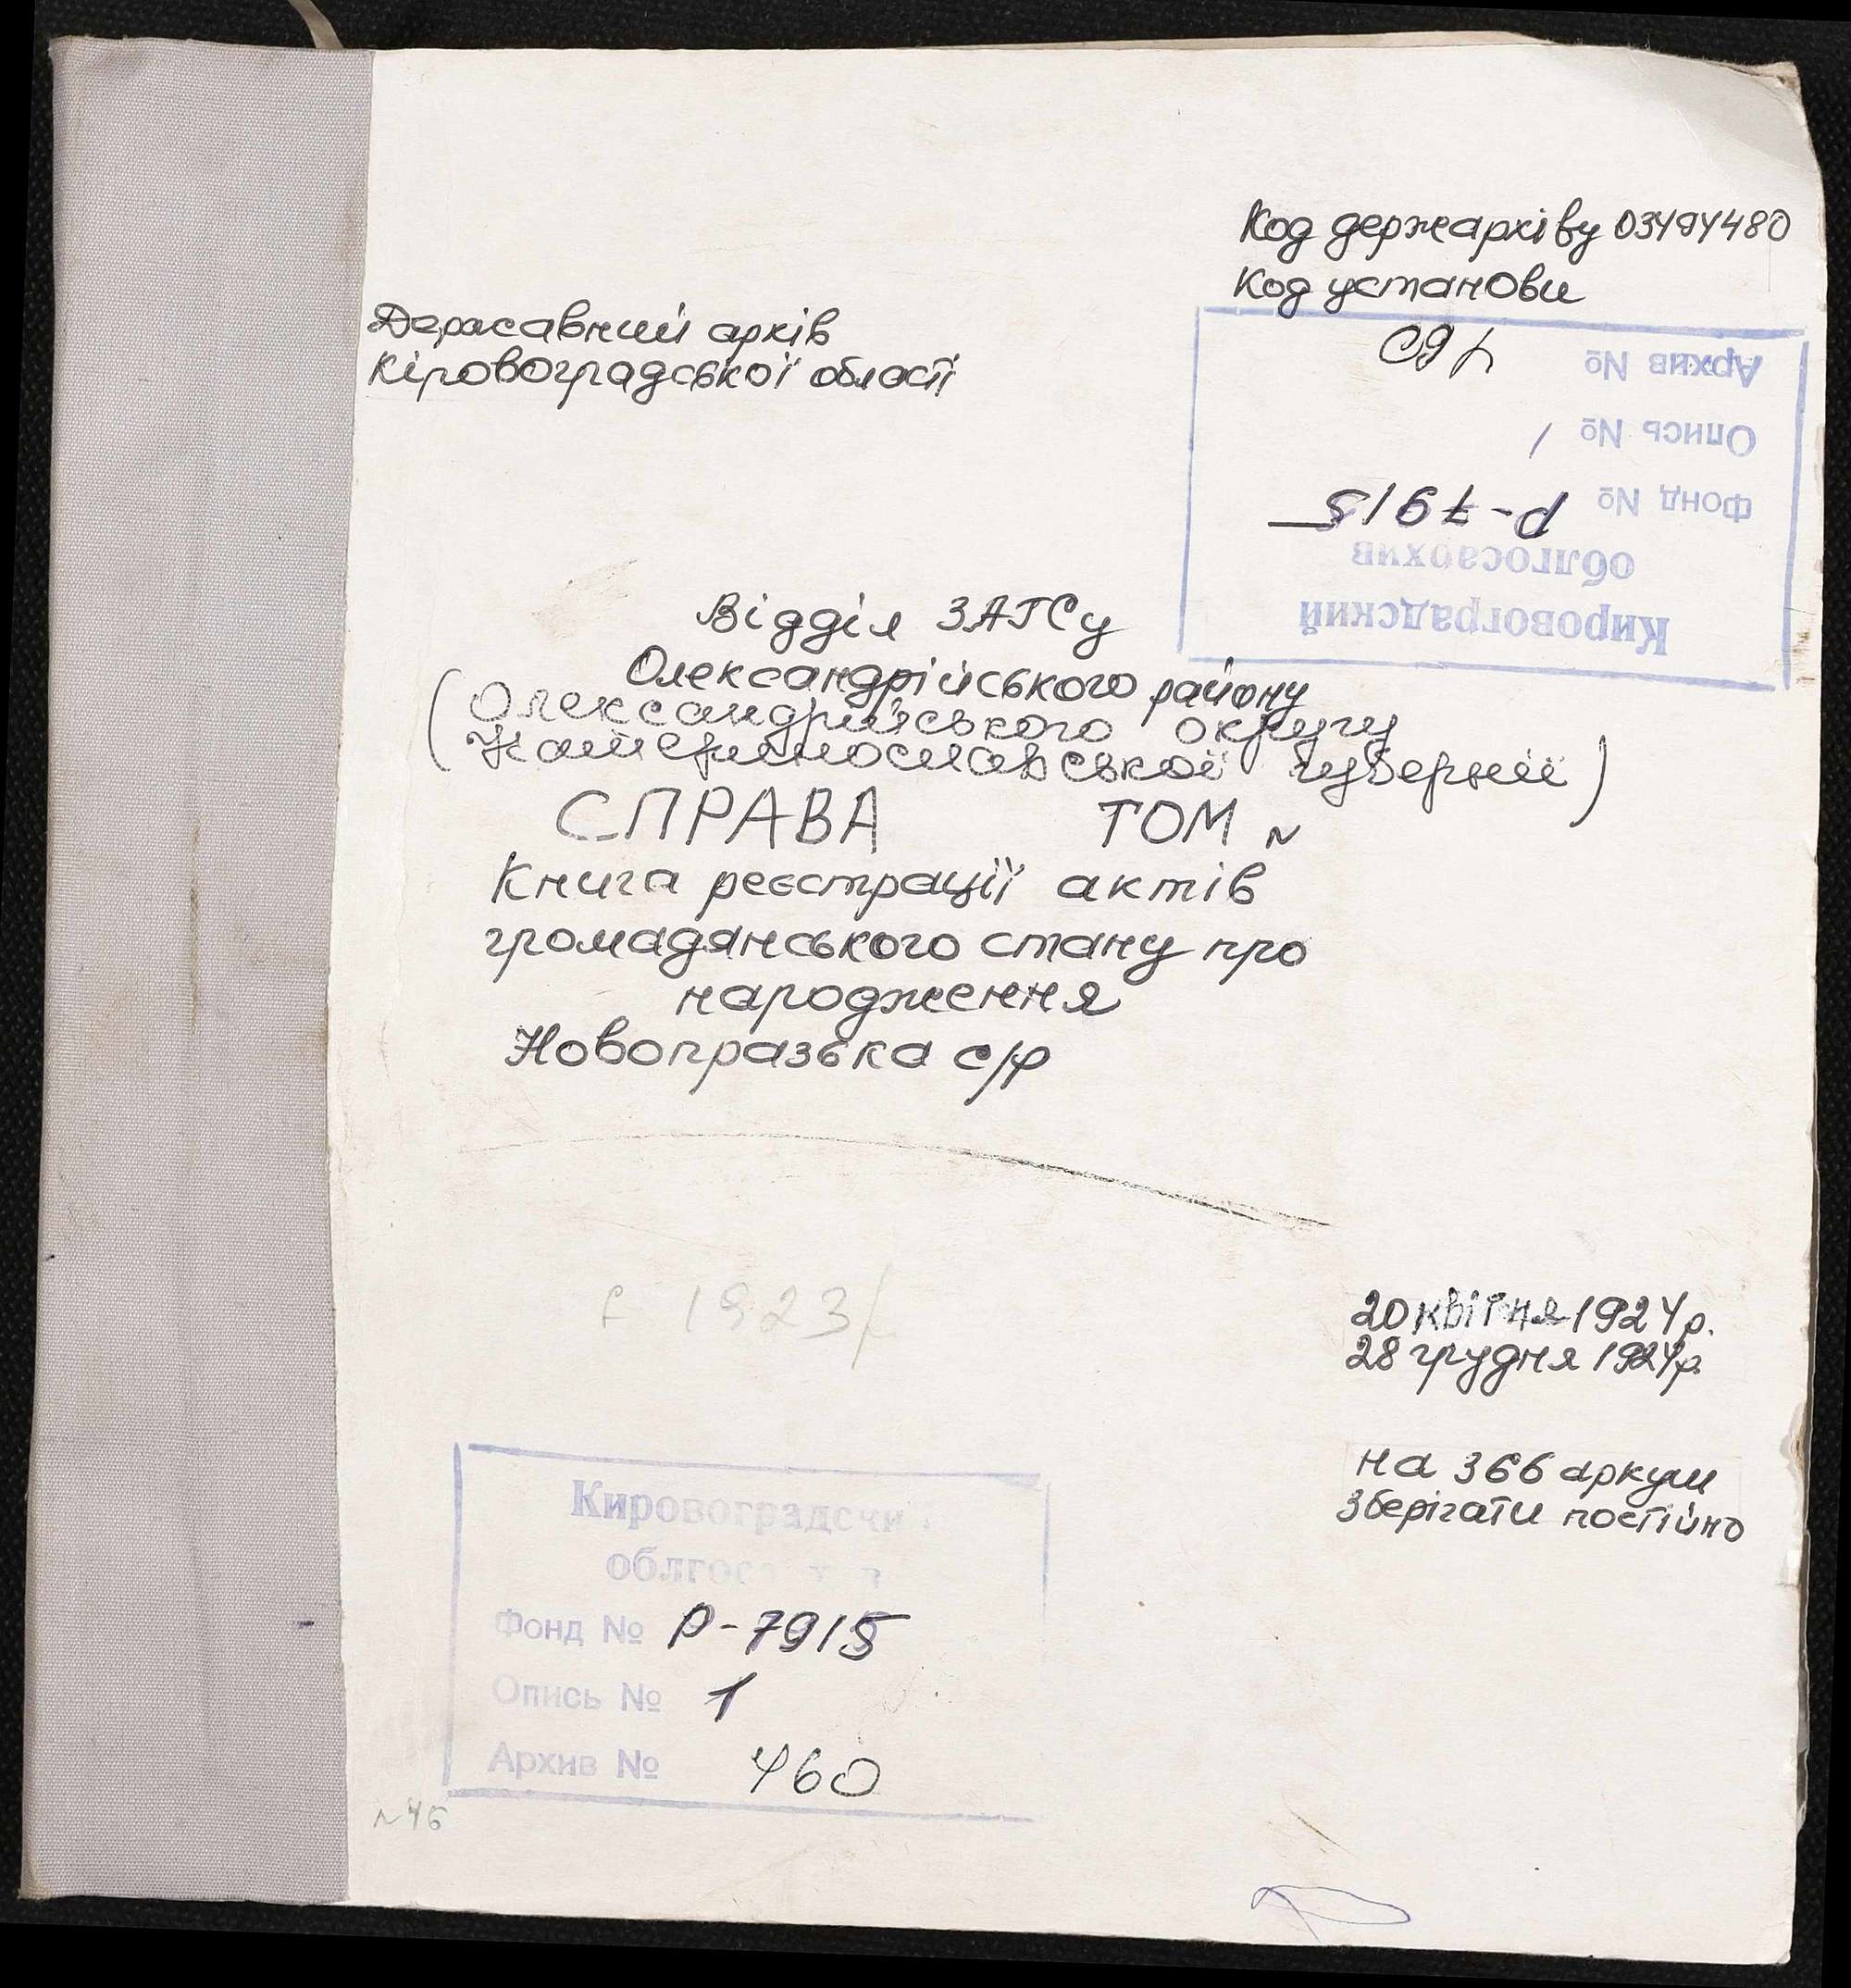 Код держархіву 03494480
Код установи
Державний архів
Кіровоградської області
Кировоградский
облгосархив
Фонд № Р-7915
Опись № 1
Архив № 460
Відділ ЗАГСу
Олександрійського району
(Олександрійського округу
Катеринославської губернії)
СПРАВА ТОМ №
Книга реєстрації актів
громадянського стану про
народження
Новопразька с/р
1923
20 квітня 1924р.
28 грудня 1924р.
на 366 аркуш
зберігати постійно
Фонд № Р-7915
Опись № 1
Архив № 460
№46